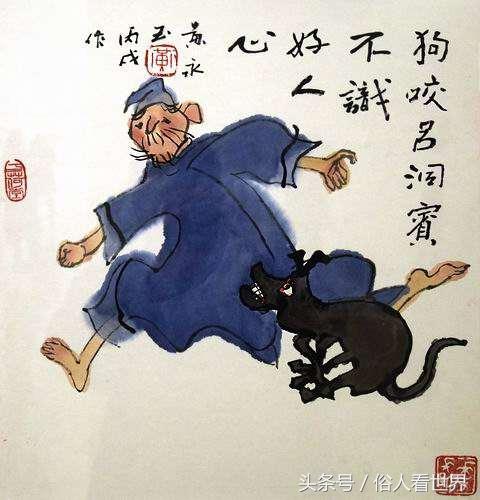 狗咬吕洞賓
不識
好人
心
黄永
玉
丙戌
作
头条号 / 俗人看世界